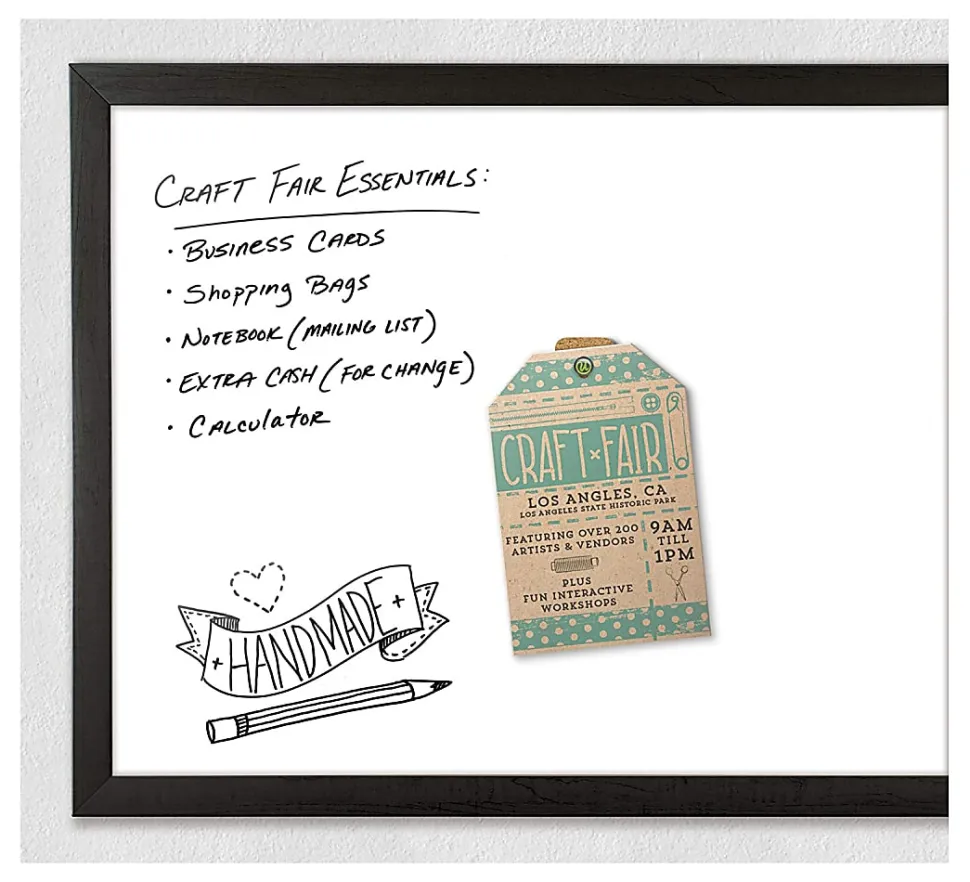 CRAFT FAIR ESSENTIALS:
• BUSINESS CARDS
• Shopping BAgs
• NOTEBOOK (MAILING LIST)
• EXTRA CASH (FOR CHANGE)
• CALCulaToR
CRAFT × FAIR
LOS ANGLES, CA
LOS ANGELES STATE HISTORIC PARK
FEATURING OVER 200
ARTISTS & VENDORS
PLUS
FUN INTERACTIVE
WORKSHOPS
9AM
TILL
1PM
+ HANDMADE +